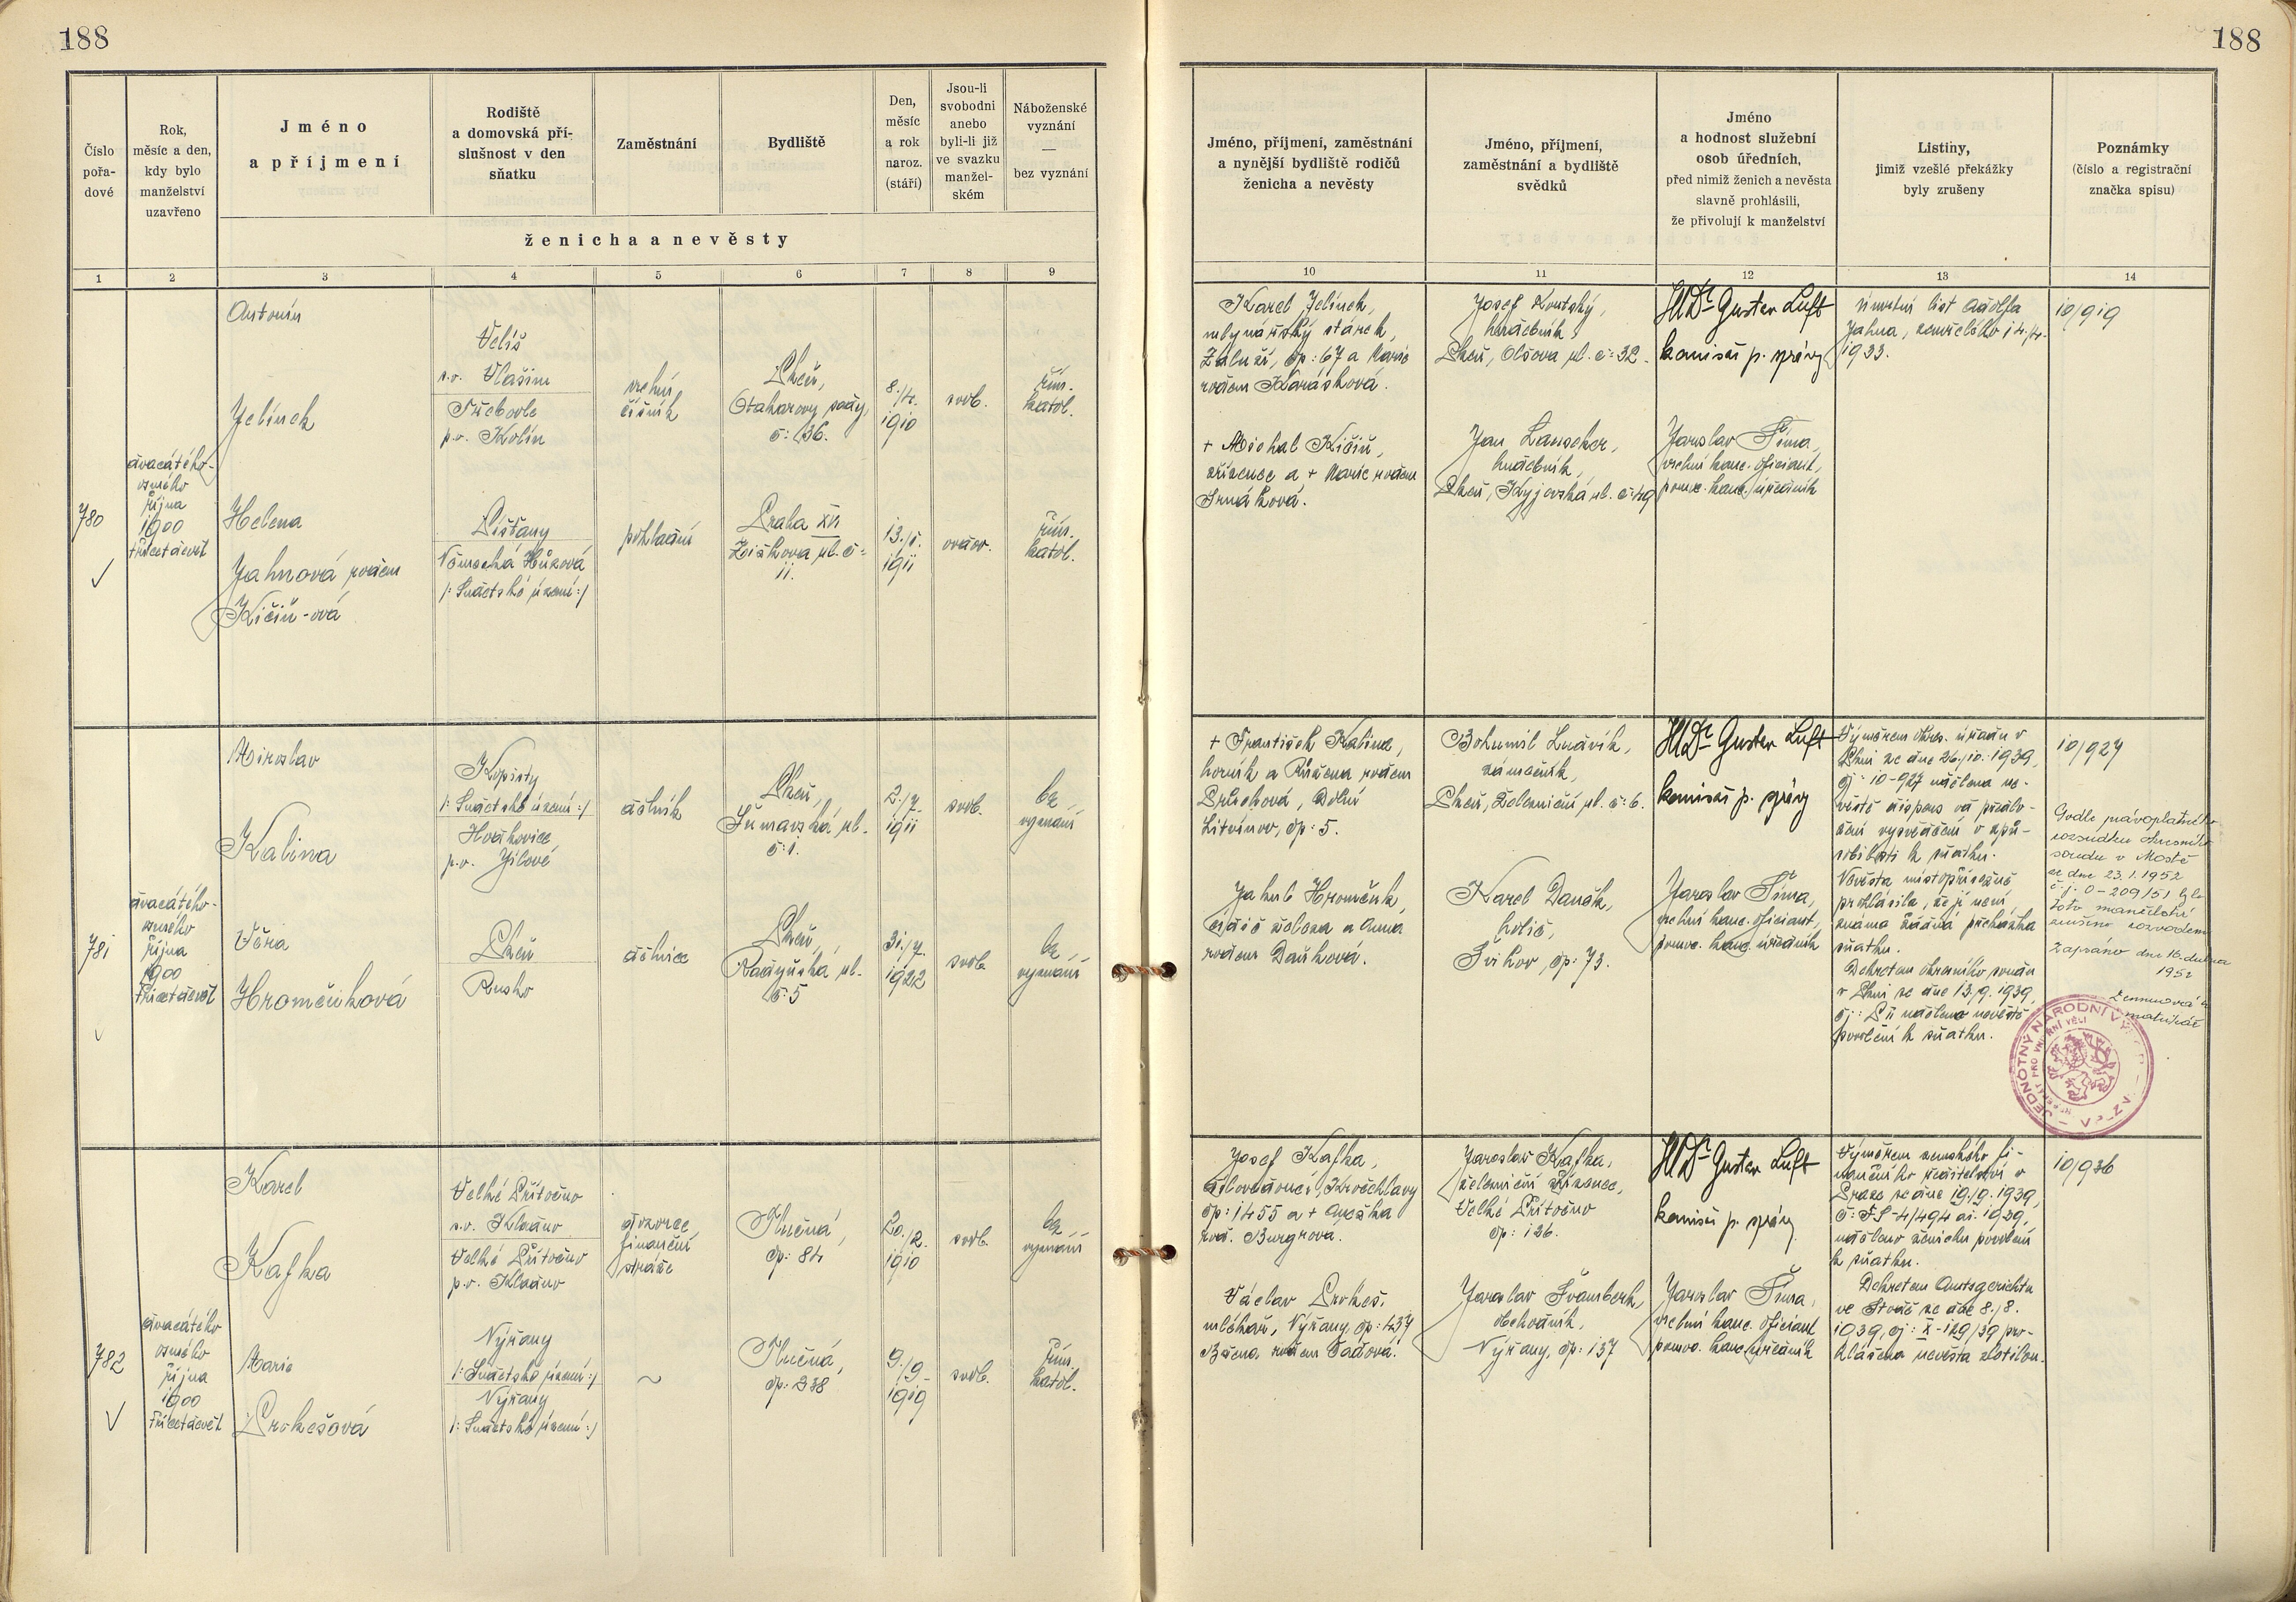 188
188
Číslo
pořa-
dové
Rok,
měsíc a den,
kdy bylo
manželství
uzavřeno
Jméno
a příjmení
Rodiště
a domovská pří-
slušnost v den
sňatku
Zaměstnání
Bydliště
Den,
měsíc
a rok
naroz.
(stáří)
Jsou-li
svobodni
anebo
byli-li již
ve svazku
manžel-
ském
Náboženské
vyznání
—
bez vyznání
ženicha a nevěsty
1 2 3 4 5 6 7 8 9
Jméno, příjmení, zaměstnání
a nynější bydliště rodičů
ženicha a nevěsty
Jméno, příjmení,
zaměstnání a bydliště
svědků
Jméno
a hodnost služební
osob úředních,
před nimiž ženich a nevěsta
slavně prohlásili,
že přivolují k manželství
Listiny,
jimiž vzešlé překážky
byly zrušeny
Poznámky
(číslo a registrační
značka spisu)
10 11 12 13 14
780
dvacátého-
osmého
října
1900
třicetdevět
Antonín
Jelínek
Veliš
s.o. Vlašim
Třebovle
p.o. Kolín
vrchní
číšník
Plzeň,
Otakarovy sady,
č: 36.
8./4.
1910
svob.
řím.
katol.
Helena
Jahnová rodem
Kičiň-ová
Líšťany
Německá Hůrová
/: Sudetské území :/
pokladní
Praha XVI
Žižkova ul. č:
11.
13./1.
1911
ovdov.
řím.
katol.
Karel Jelínek,
mlynářský stárek,
Záluží, čp: 67 a Marie
rodem Karásková.
+ Michal Kičiň,
zřízenec a + Marie rodem
Josef Koutský,
hudebník,
Plzeň, Olšova ul. č: 32.
Jan Lanscher,
hudebník,
Plzeň, Kyjovská ul. č: 49
JUDr Gustav Luft
komisař p. správy
Jaroslav Šíma,
vrchní kanc. oficiant,
pomoc. kanc. úředník
Úmrtní list Adolfa
Jahna, zemřelého 14./4.
1933.
10/919
781
dvacátého-
osmého
října
1900
třicetdevět
Miroslav
Kalina
Kopisty
/: Sudetské území :/
Hvozdnice,
p.o. Jílové
dělník
Plzeň,
Šumavská ul.
č: 1.
2./7.
1911
svob.
bez
vyznání
Věra
Hromčuková
Plzeň
Rusko
dělnice
Plzeň,
Radyňská ul.
č: 5
31./7.
1922
svob.
bez
vyznání
+ František Kalina,
horník a Růžena rodem
Dolní
Litvínov, čp: 5.
Jakub Hromčuk,
čistič železa a Anna
rodem Daňková.
Bohumil Ludvík,
zámečník,
Plzeň, Železniční ul. č: 6.
Karel Daněk,
holič,
Švihov, čp: 73.
JUDr Gustav Luft
komisař p. správy
Jaroslav Šíma,
vrchní kanc. oficiant,
pomoc. kanc. úředník
Výměrem okres. úřadu v
Plzni ze dne 26./10. 1939,
čj: 10-927 udělena ne-
věstě dispens od předlo-
žení vysvědčení o způ-
sobilosti k sňatku.
Nevěsta místopřísežně
prohlásila, že jí není
známa žádná překážka
sňatku.
Dekretem okresního soudu
v Plzni ze dne 13./9. 1939,
čj: P II uděleno nevěstě
povolení k sňatku.
10/927
Podle právoplatného
rozsudku okresního
soudu v Mostě
ze dne 23.1.1952
č.j. 0-209/51 bylo
toto manželství
zrušeno rozvodem
Zapsáno dne 16. dubna
1952
matrikář
JEDNOTNÝ NÁRODNÍ VÝ
782
dvacátého
osmého
října
1900
třicetdevět
Karel
Kafka
Velké Přítočno
s.o. Kladno
Velké Přítočno
p.o. Kladno
dozorce
finanční
stráže
Plučná,
čp: 84
20./2.
1910
svob.
bez
vyznání
Marie
Prokešová
Nýřany
/: Sudetské území :/
Nýřany
/: Sudetské území :/
~
čp: 238
9./9.
1919
svob.
řím.
katol.
Josef Kafka,
Kročehlavy
čp: 1455 a + Anežka
rod. Burgrova.
Václav Prokeš,
mlékař, Nýřany, čp: 437
Jaroslav Kafka,
železniční zřízenec,
Velké Přítočno
čp: 126.
Jaroslav Švamberk,
obchodník,
Nýřany, čp: 137
JUDr Gustav Luft
komisař p. správy
Jaroslav Šíma,
vrchní kanc. oficiant
pomoc. kanc. úředník
Výměrem zemského fi-
nančního ředitelství v
Praze ze dne 19./9. 1939,
uděleno ženichu povolení
k sňatku.
Dekretem Amtsgerichtu
ve Stodě ze dne 8./8.
1939, čj: X-129/39 pro-
hlášena nevěsta zletilou.
10/936